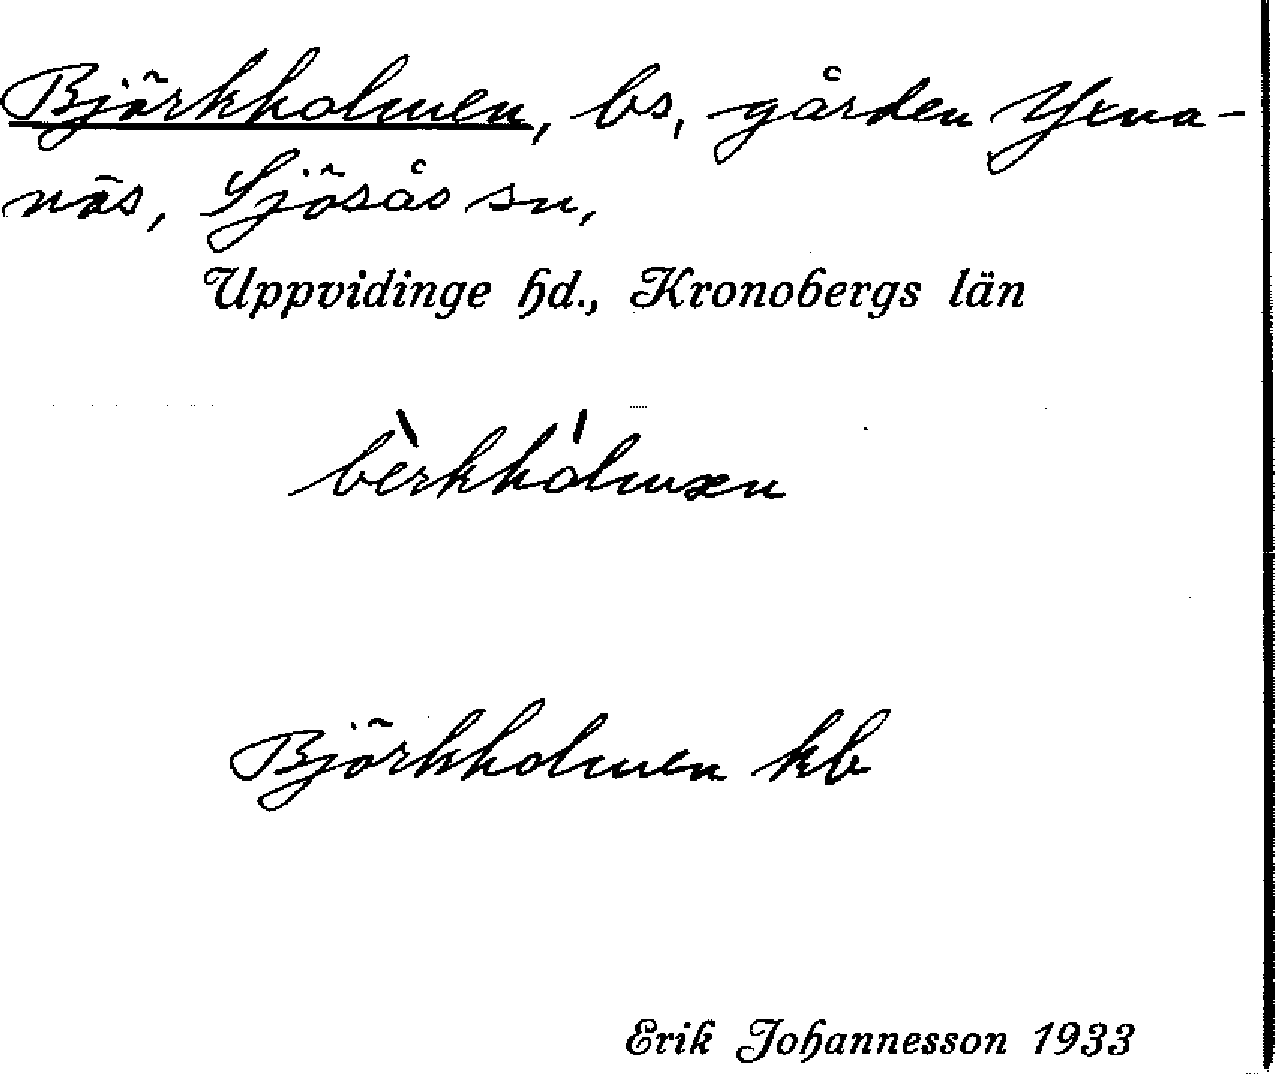 Björkholmen, bs, gården Yxna-
näs, Sjösås sn,
Uppvidinge hd., Kronobergs län
bèrkhólmæn
Björkholmen kb
Erik Johannesson 1933